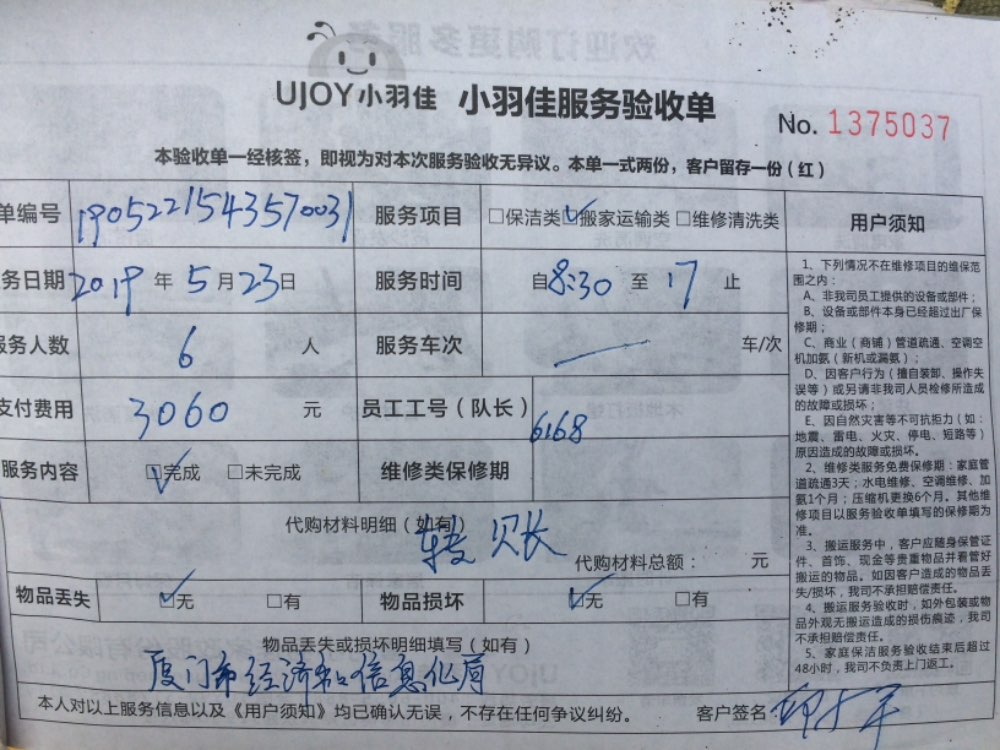 UJOY小羽佳 小羽佳服务验收单
No. 1375037
本验收单一经核签，即视为对本次服务验收无异议。本单一式两份，客户留存一份（红）
单编号 1905221543570031 服务项目 □保洁类 ☑搬家运输类 □维修清洗类
务日期 2019 年 5 月 23 日 服务时间 自 8:30 至 17 止
服务人数 6 人 服务车次 — 车/次
支付费用 3060 元 员工工号（队长） 6168
服务内容 ☑完成 □未完成 维修类保修期
代购材料明细（如有）
转账
代购材料总额： 元
物品丢失 ☑无 □有 物品损坏 ☑无 □有
物品丢失或损坏明细填写（如有）
厦门市经济和信息化局
本人对以上服务信息以及《用户须知》均已确认无误，不存在任何争议纠纷。 客户签名
用户须知
1、下列情况不在维修项目的维保范
围之内：
A、非我司员工提供的设备或部件；
B、设备或部件本身已经超过出厂保
修期；
C、商业（商铺）管道疏通、空调空
机加氨（新机或漏氨）；
D、因客户行为（擅自装卸、操作失
误等）或另请非我司人员检修所造成
的故障或损坏；
E、因自然灾害等不可抗拒力（如：
地震、雷电、火灾、停电、短路等）
原因造成的故障或损坏。
2、维修类服务免费保修期：家庭管
道疏通3天；水电维修、空调维修、加
氨1个月；压缩机更换6个月。其他维
修项目以服务验收单填写的保修期为
准。
3、搬运服务中，客户应随身保管证
件、首饰、现金等贵重物品并看管好
搬运的物品。如因客户造成的物品丢
失/损坏，我司不承担赔偿责任。
4、搬运服务验收时，如外包装或物
品外观无搬运造成的损伤痕迹，我司
不承担赔偿责任。
5、家庭保洁服务验收结束后超过
48小时，我司不负责上门返工。